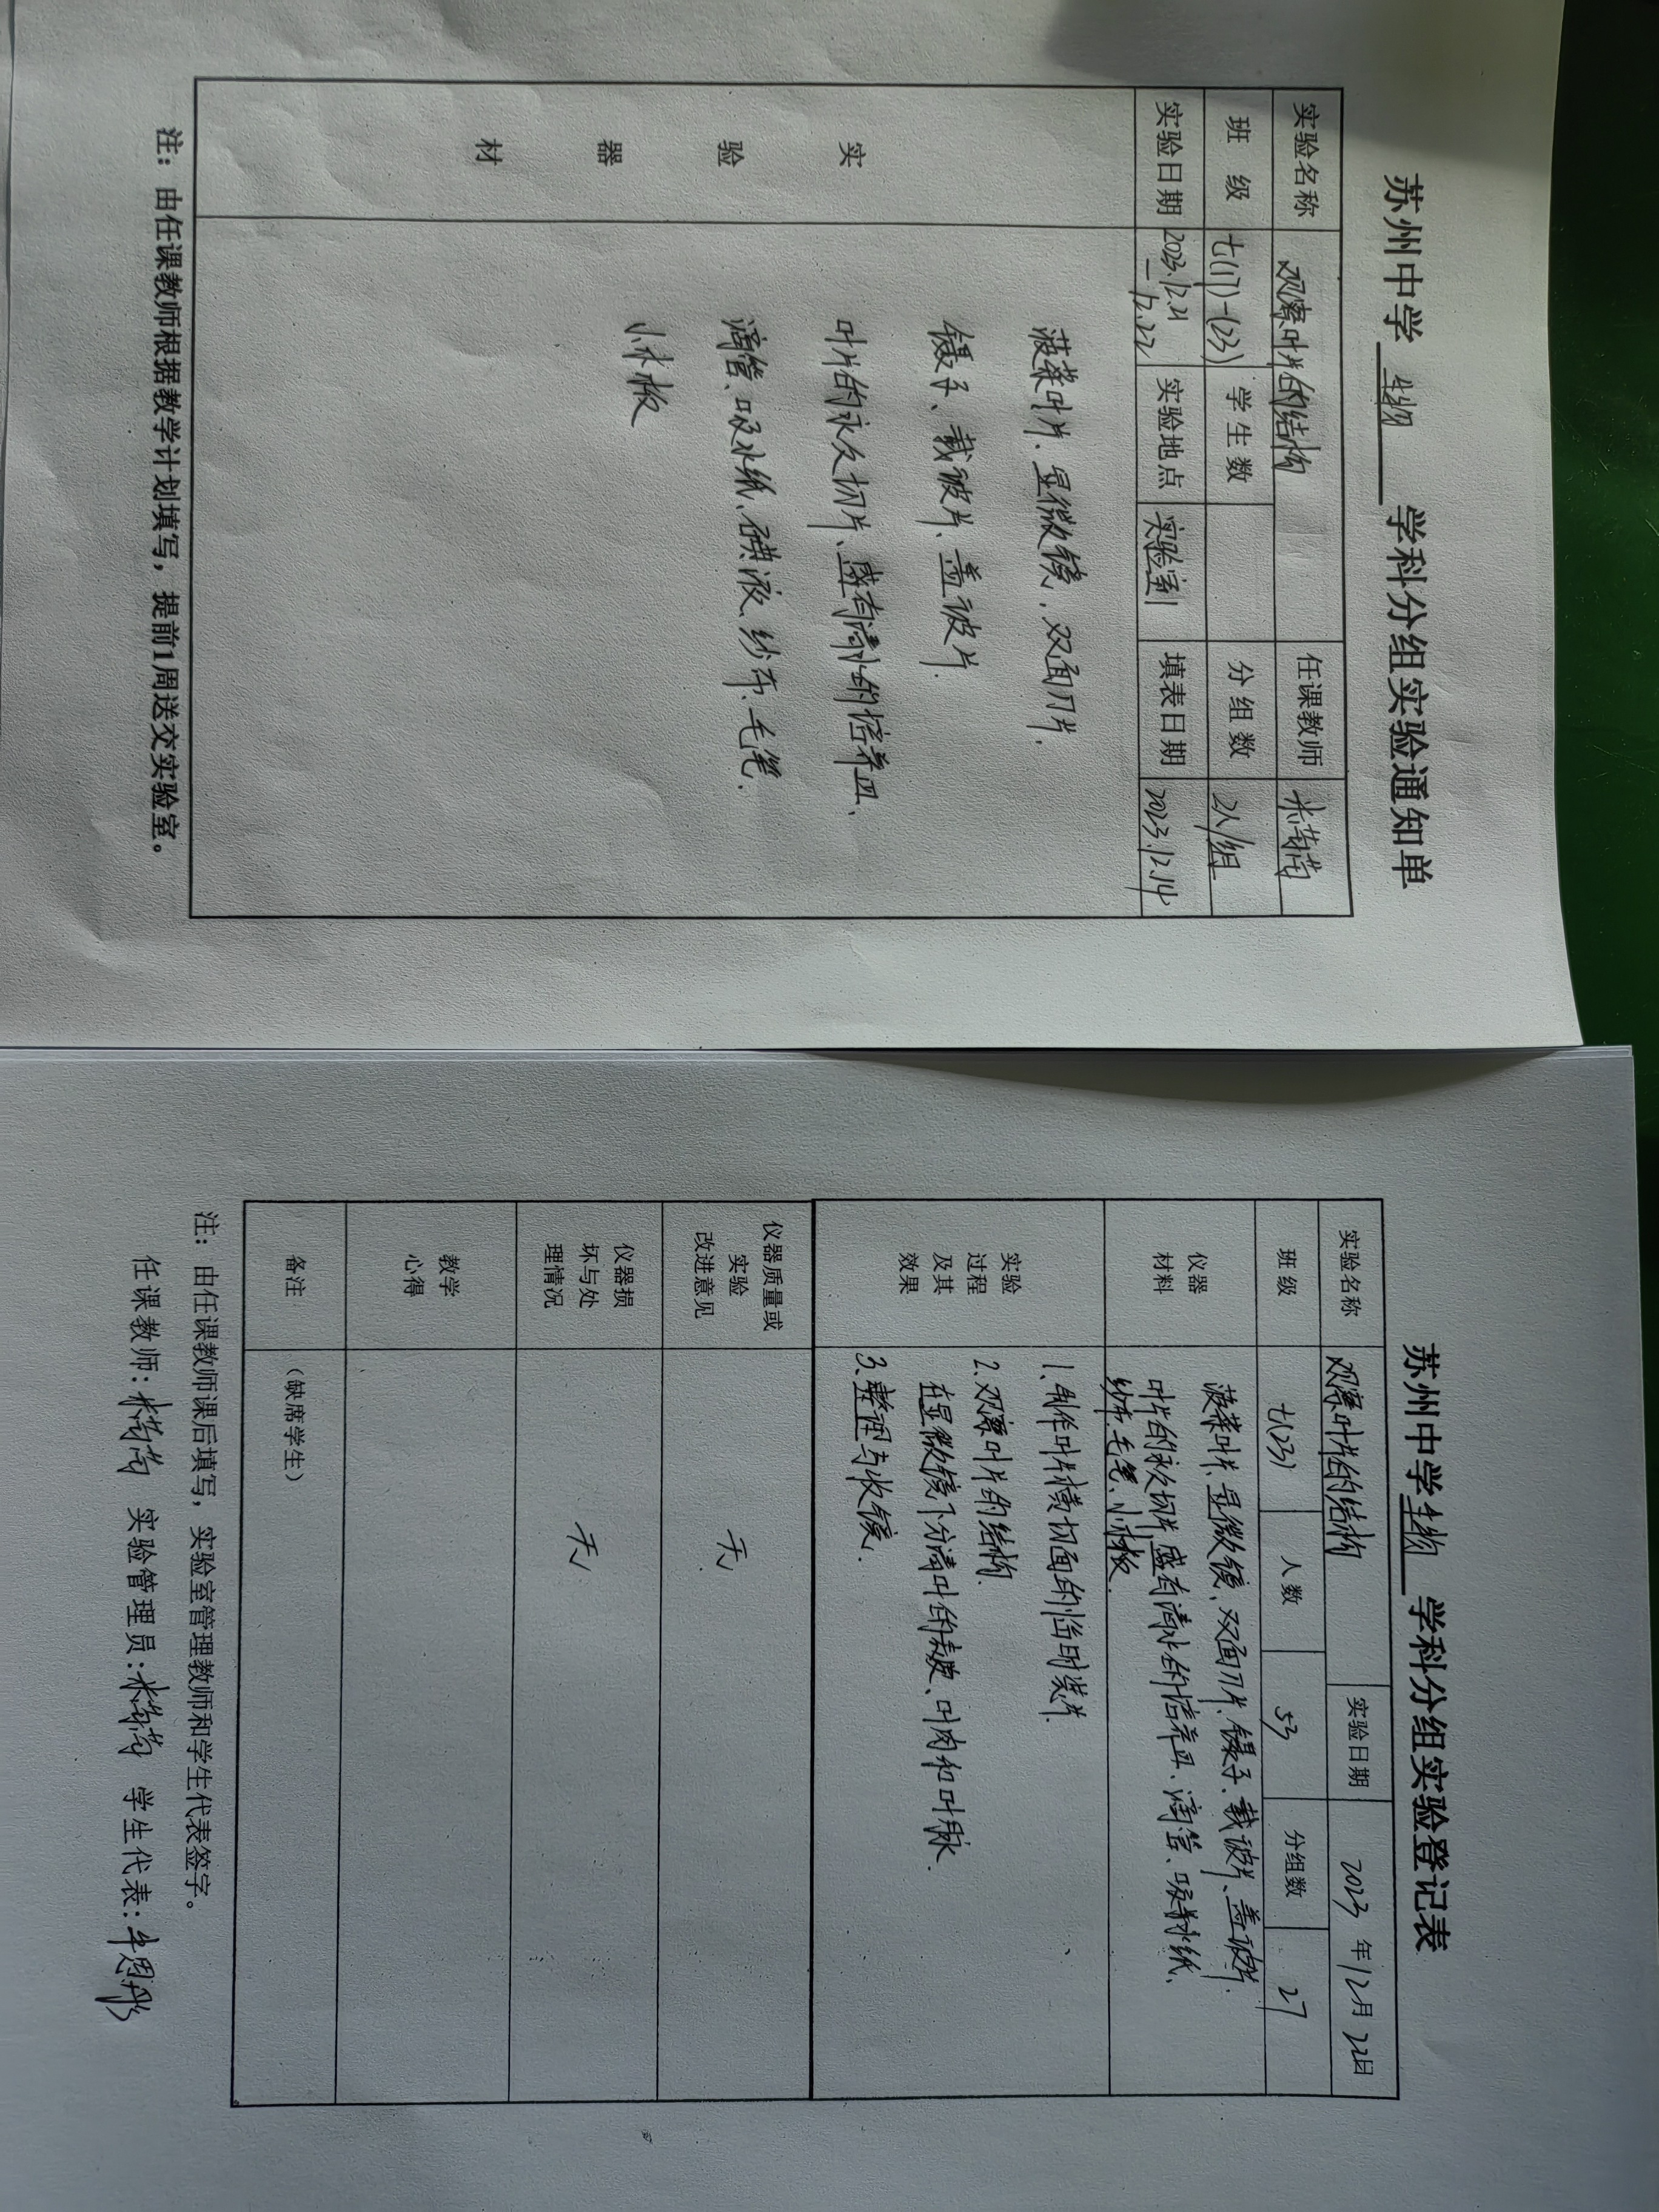 苏州中学 生物 学科分组实验通知单
实验名称 观察叶片的结构 任课教师
班 级 七(17)-(23) 学生数 分组数 2人/组
实验日期 2023.12.21-12.22 实验地点 实验室 填表日期 2023.12.14
实验器材
菠菜叶片、显微镜、双面刀片、
镊子、载玻片、盖玻片、
叶片的永久切片、盛有清水的培养皿、
滴管、吸水纸、碘液、纱布、毛笔、
小木板
注：由任课教师根据教学计划填写，提前1周送交实验室。
苏州中学 生物 学科分组实验登记表
实验名称 观察叶片的结构 实验日期 2023 年 12 月 22 日
班 级 七(23) 人 数 53 分组数 27
仪器材料
菠菜叶片、显微镜、双面刀片、镊子、载玻片、盖玻片、
叶片的永久切片、盛有清水的培养皿、滴管、吸水纸、
纱布、毛笔、小木板.
实验过程及其效果
1、制作叶片横切面的临时装片.
2、观察叶片的结构.
在显微镜下分清叶的表皮、叶肉和叶脉.
3、整理与收镜.
仪器质量或实验改进意见 无
仪器损坏与处理情况 无
教学心得
备注 （缺席学生）
注：由任课教师课后填写，实验室管理教师和学生代表签字。
任课教师： 实验管理员： 学生代表：